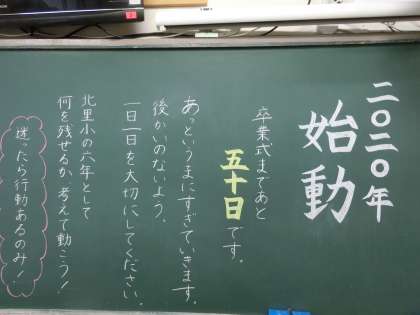 二〇二〇年
始動
卒業式まであと
五十日です。
あっというまにすぎていきます。
後かいのないよう、
一日一日を大切にしてください。
北里小の六年として
何を残せるか、考えて動こう!
迷ったら行動あるのみ!